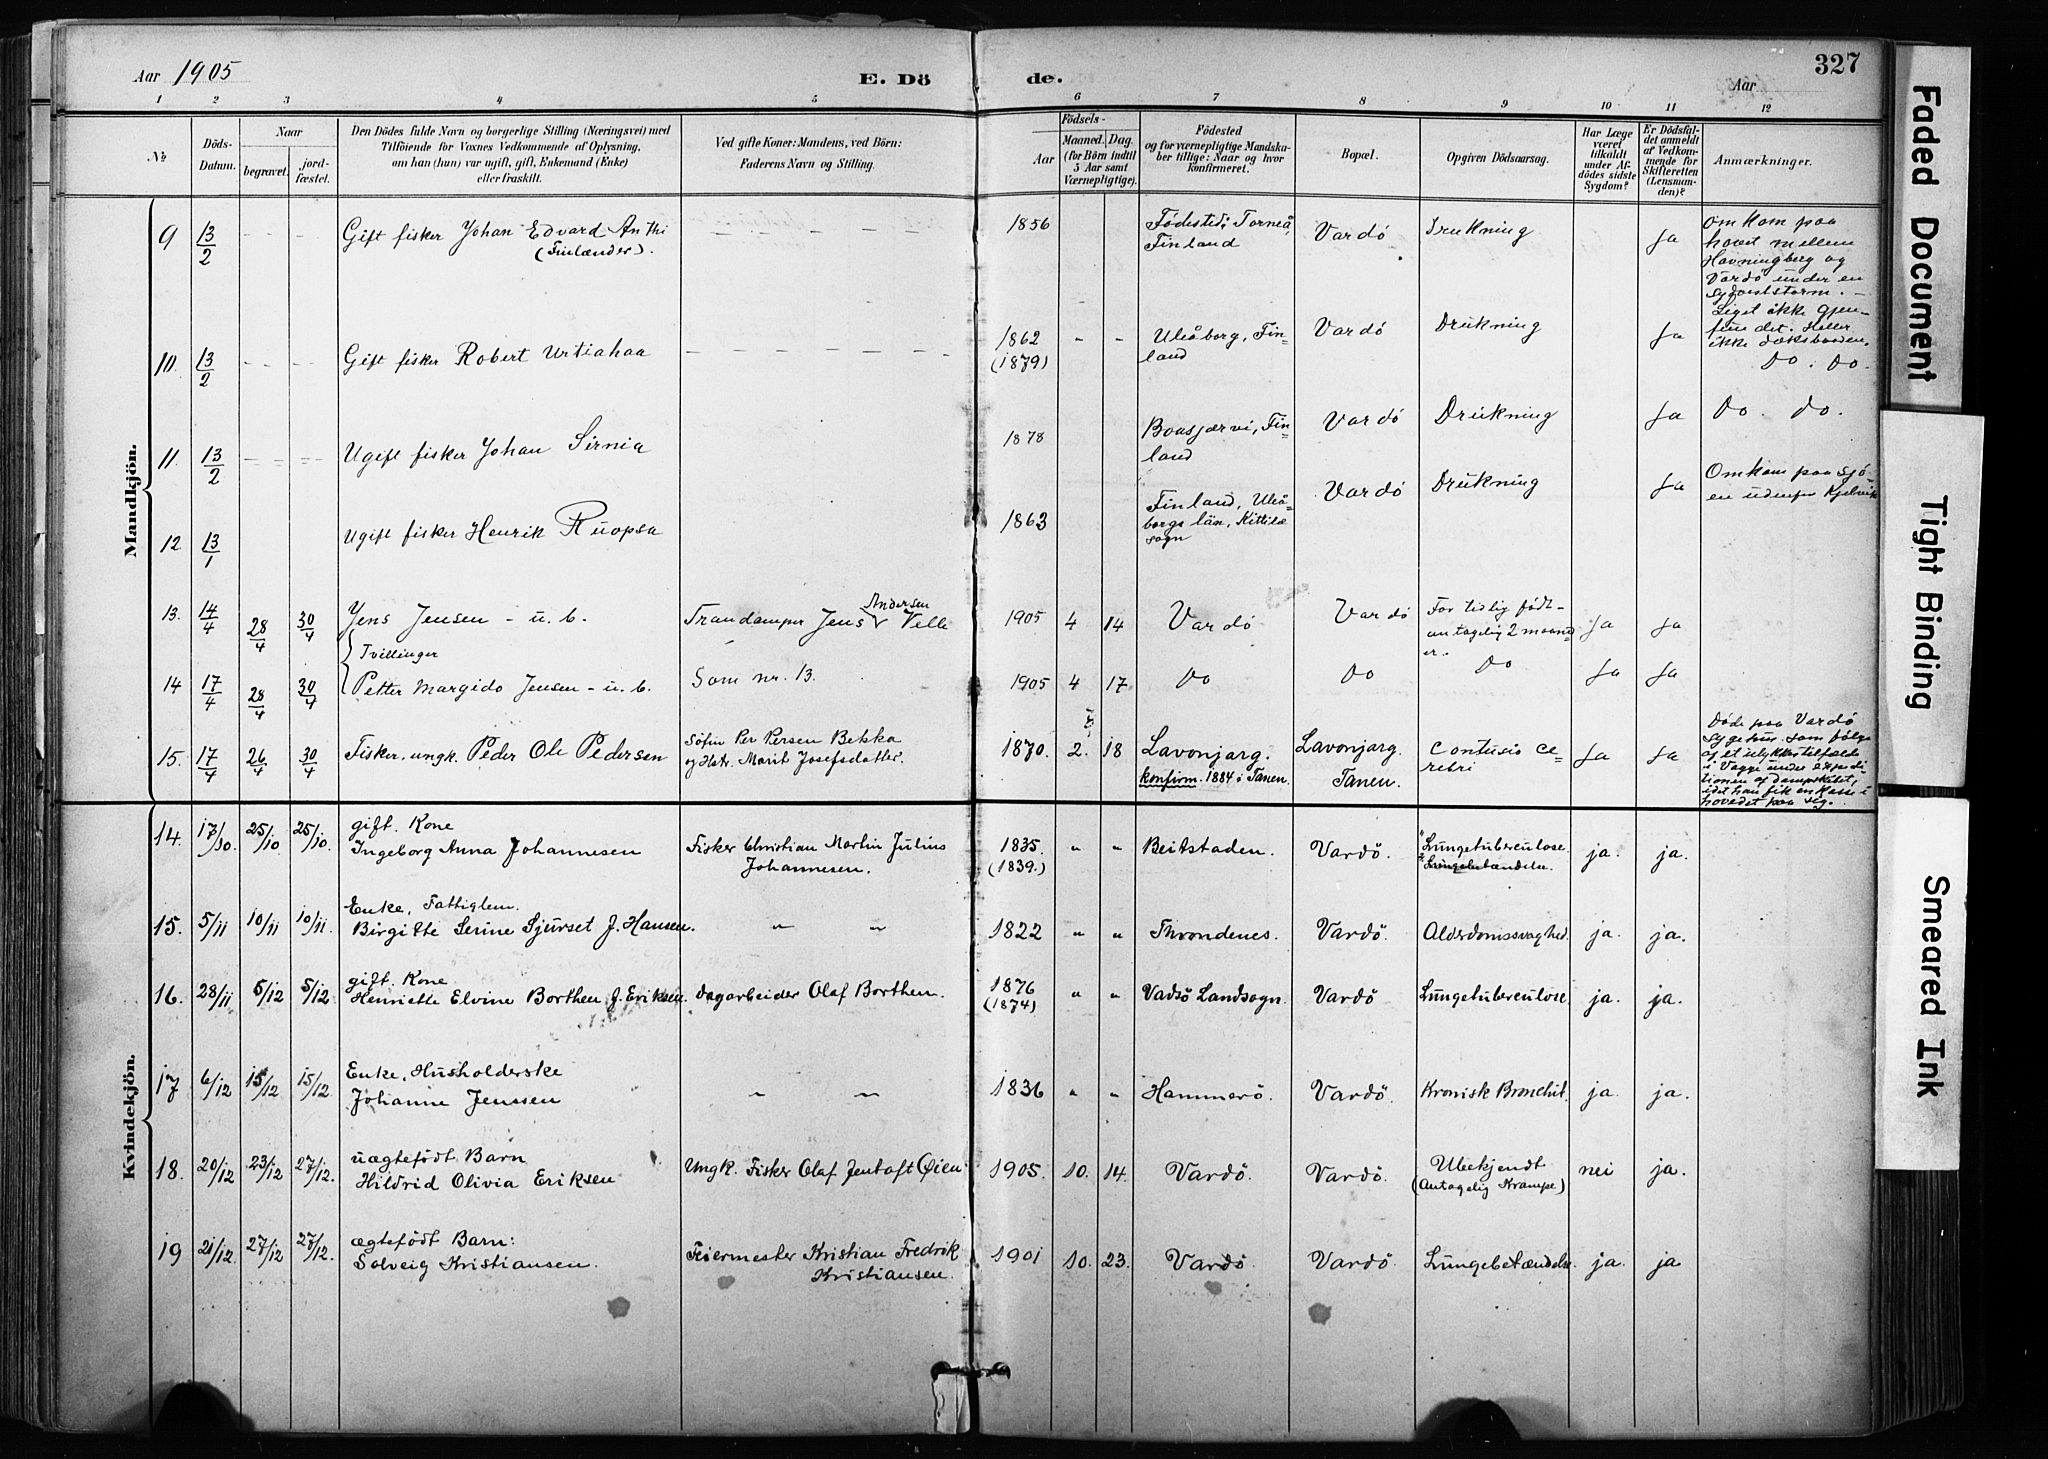 Aar 1905
E. Döde.
Aar
327
1 2 3 4 5 6 7 8 9 10 11 12
№
Döds-Datum.
Naar
begravet.
jord-fæstet.
Den Dödes fulde Navn og borgerlige Stilling (Næringsvei) med
Tilföiende for Voxnes Vedkommende af Oplysning,
om han (hun) var ugift, gift, Enkemand (Enke)
eller fraskilt.
Ved gifte Koner: Mandens, ved Börn:
Faderens Navn og Stilling.
Födsels-
Aar
Maaned. Dag.
(for Börn indtil
5 Aar samt
Værnepligtige).
Födested
og for værnepligtige Mandska-
ber tillige: Naar og hvor
Konfirmeret.
Bopæl.
Opgiven Dödsaarsag.
Har Læge
været
tilkaldt
under Af-
dödes sidste
Sygdom?
Er Dödsfal-
det anmeldt
af Vedkom-
mende for
Skifteretten
(Lensman-
den)?
Anmærkninger.
Mandkjön.
9 13/2 - - - Gift fisker Johan Edvard Anthi
(Finlænder).
1856 Födested: Torneå,
Finland Vardö Drukning Ja
Omkom paa
havet mellem
Havningberg og
Vardö under en
sydveststorm. -
Liget ikke gjen-
fundet. Heller
ikke
10. 13/2 - - - Gift fisker Robert Urtiahaa - - - - - -
1862
(1879) " " Uleåborg, Fin-
land Vardö Drukning Ja Do. Do.
11. 13/2 - - - Ugift fisker Johan Sirnia
1878 Fin-
land Vardö Drukning Ja Do. do.
12 13/1 Ugift fisker Henrik Ruopsa
1863 Finland, Uleå-
borgs län, Kittilæ
sogn Vardö Drukning Ja Omkom paa sjö-
en
13. 14/4 28/4 30/4 Jens Jensen - u. b.
Trandamper Jens Andersen Velle
1905 4 14 Vardö Vardö For tidlig födt -
antagelig 2 maaned-
er. Ja Ja
Tvillinger
14 17/4 28/4 30/4 Petter Margido Jensen - u. b. Som nr. 13.
1905 4 17 Do Do Do Ja Ja
15. 17/4 26/4 30/4 Fisker, ungk. Peder Ole Pedersen
Söfin Per Persen Bekka
og Hstr. Marit Josefsdatter.
1870. 2. 18 Lavonjarg.
konfirm. 1884 i Tanen. Lavonjarg.
Tanen. Contusio ce-
rebri Ja Ja
Döde paa Vardö
Sygehus som fölge
af et ulykkestilfælde
i Vagge under expedi-
tionen af dampskibet,
idet han fik en kasse i
hovedet paa sig.
Kvindekjön.
14. 17/10. 25/10 25/10. gift. Kone
Ingeborg Anna Johannesen Fisker Christian Martin Julius
Johannesen.
1835.
(1839.) " " Beitstaden. Vardö. Lungetuberculose.
Lungebetændelse. ja. ja.
15. 5/11 10/11 10/11. Enke, Fattiglem.
Birgitte Serine Sjurset f. Hansen. " "
1822 " " Throndenes. Vardö. Alderdomssvaghed. ja. ja.
16. 28/11 5/12 5/12. gift. Kone
Henriette Elvine Borthen f. Eriksen. Dagarbeider Olaf Borthen.
1876
(1874) " " Vadsö Landsogn. Vardö Lungetuberculose. ja. ja.
17 6/12 15/12 15/12. Enke, Husholderske
Johanne Jenssen " "
1836 " " Hammerö. Vardö. Kronisk Bronchit. ja. ja.
18. 20/12 23/12 27/12. uægtefödt Barn
Hildrid Olivia Eriksen Ungk. Fisker Olaf Jentoft Öien
1905. 10. 14. Vardö. Vardö. Ubekjendt
(Antagelig Krampe) nei ja.
19 21/12. 27/12 27/12. ægtefödt Barn:
Solveig Kristiansen. Feiermester Kristian Fredrik
Kristiansen.
1901 10. 23. Vardö Vardö. Lungebetændelse. ja. ja
Faded Document
Tight Binding
Smeared Ink